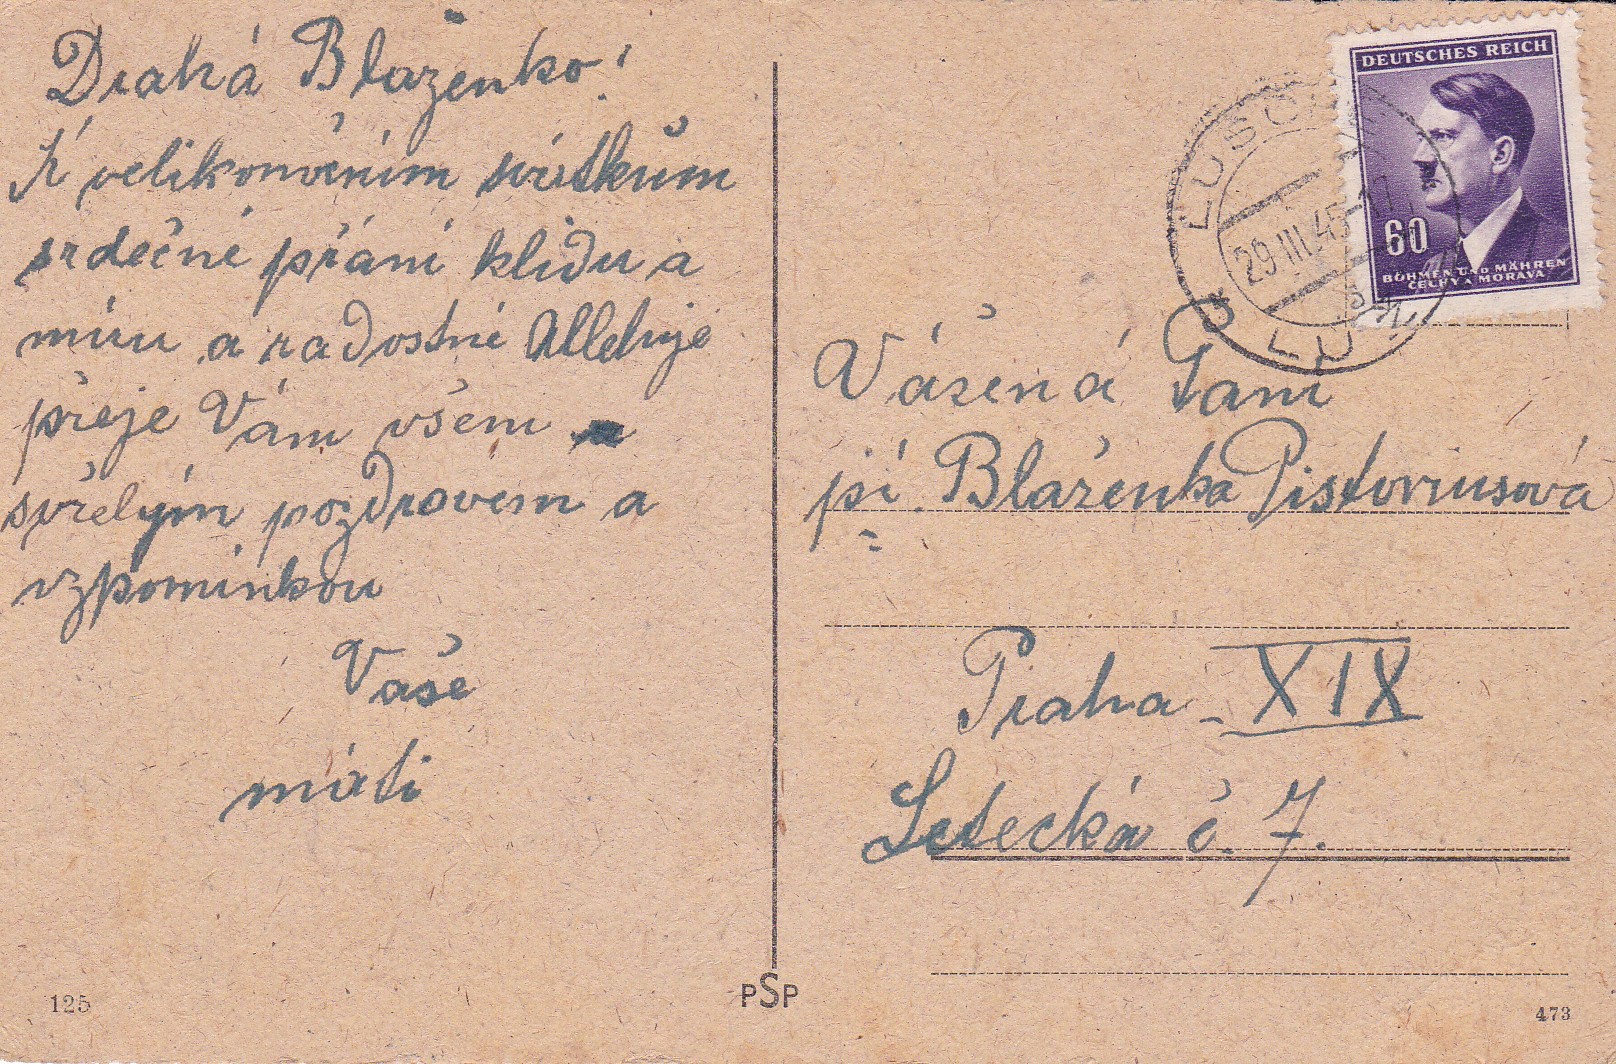 Drahá Blaženko!
K velikonočním svátkům
srdečné přání klidu a
míru a radostné Alleluje
přeje Vám všem
svřelým pozdravem a
vzpomínkou
Vaše
máti
DEUTSCHES REICH
60
BÖHMEN UND MÄHREN
ČECHY A MORAVA
29.III.45-17
Vášená Paní
pí. Blaženka Pistoriusová
Praha - XIX
Letecká č. 7.
125
PSP
473